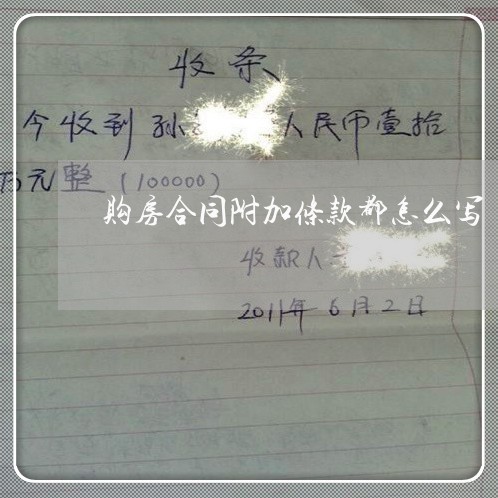 收条
今收到孙 人民币壹拾
万元整(100000)
购房合同附加條款都怎么写
收款人
2011年6月2日